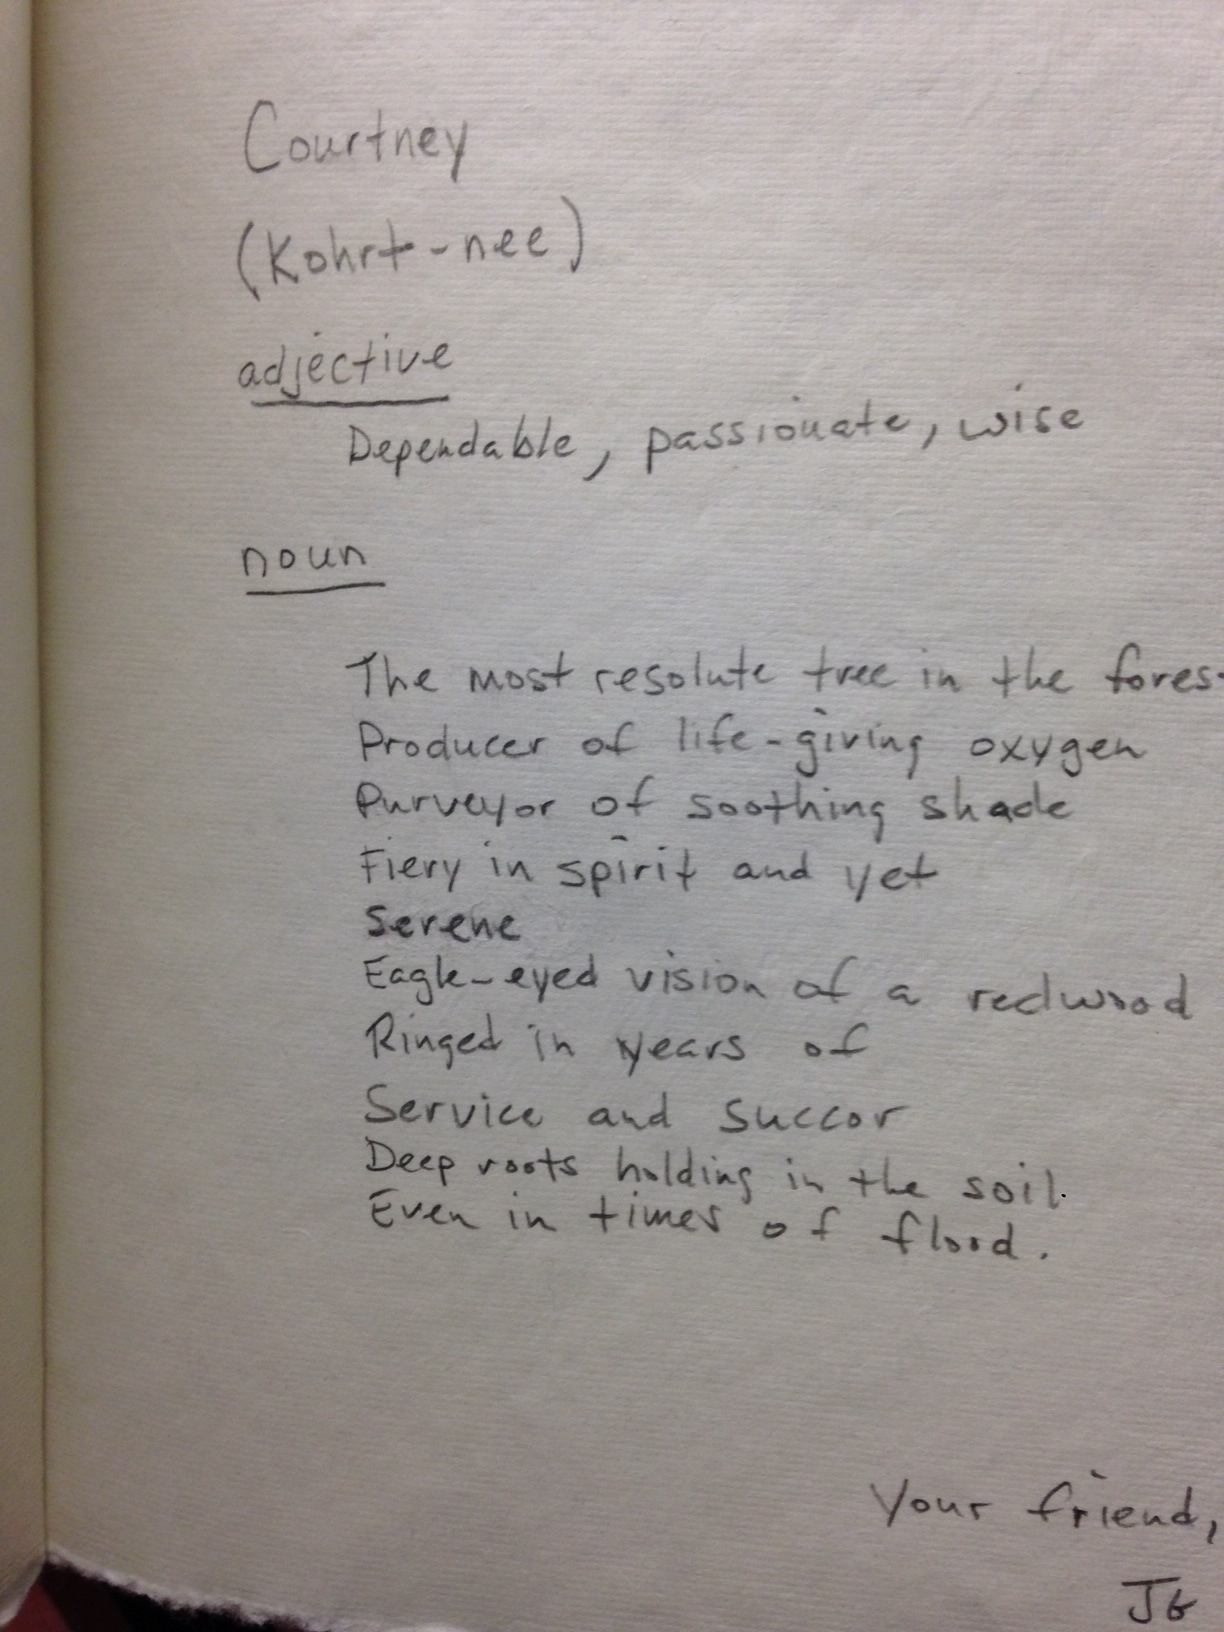 Courtney
(Kohrt-nee)
adjective
Dependable, passionate, wise
noun
The most resolute tree in the fores
Producer of life-giving oxygen
Purveyor of soothing shade
Fiery in spirit and yet
Serene
Eagle-eyed vision of a redwood
Ringed in years of
Service and succor
Deep roots holding in the soil.
Even in times of flood.
Your friend,
JG